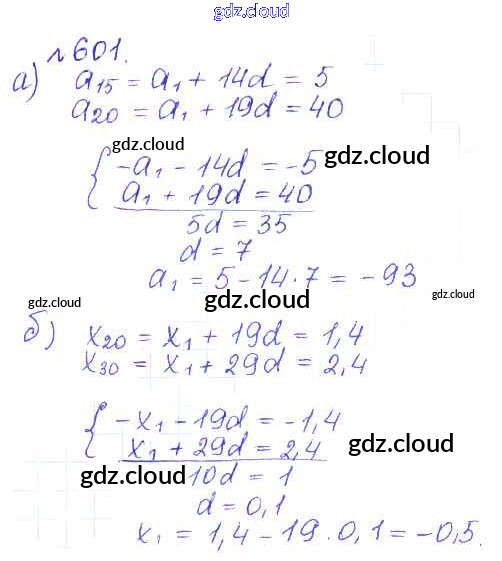 gdz.cloud
№ 601.
а) a₁₅ = a₁ + 14d = 5
a₂₀ = a₁ + 19d = 40
gdz.cloud
gdz.cloud
{ -a₁ - 14d = -5
a₁ + 19d = 40
5d = 35
d = 7
a₁ = 5 - 14·7 = -93
gdz.cloud
gdz.cloud
gdz.cloud
б) x₂₀ = x₁ + 19d = 1,4
x₃₀ = x₁ + 29d = 2,4
{ -x₁ - 19d = -1,4
x₁ + 29d = 2,4
gdz.cloud
gdz.cloud
10d = 1
d = 0,1
gdz.cloud
x₁ = 1,4 - 19·0,1 = -0,5.